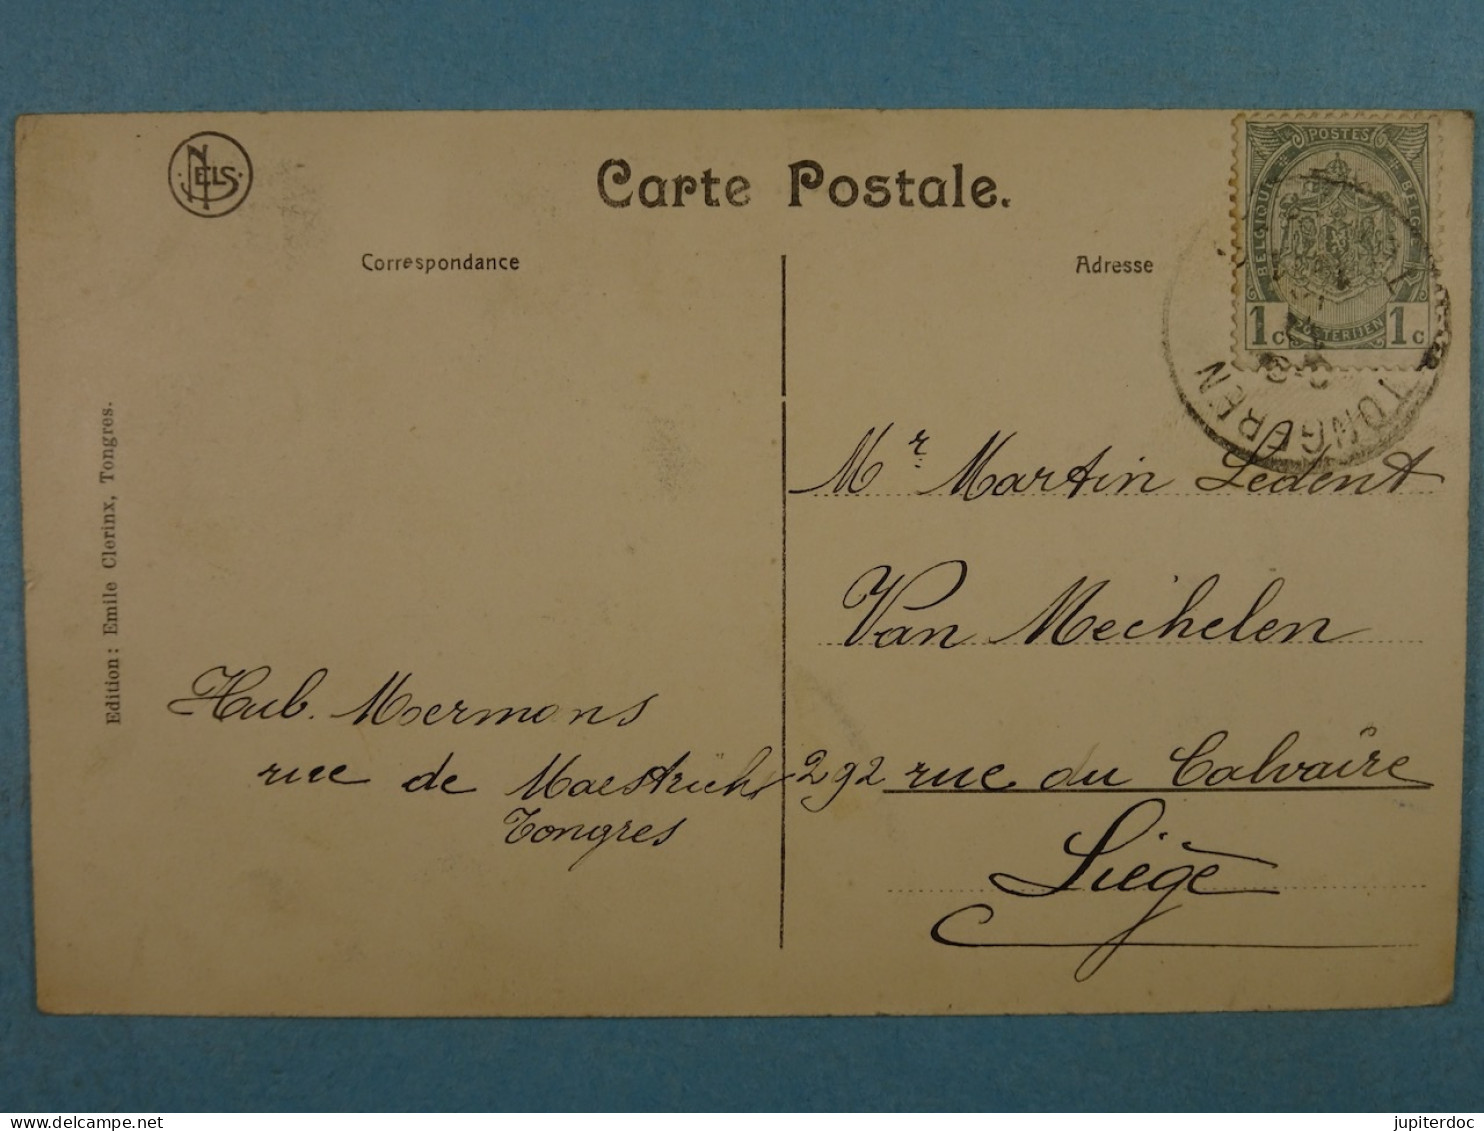 NELS
Carte Postale.
Correspondance
Adresse
POSTES
BELGIQUE
BELGIE
1c
POSTERIJEN
1c
TONGEREN
Edition: Emile Clerinx, Tongres.
Mr Martin Ledent
Van Mechelen
292 rue du Calvaire
Liège
Hub. Moermons
rue de Maestricht
Tongres
jupiterdoc